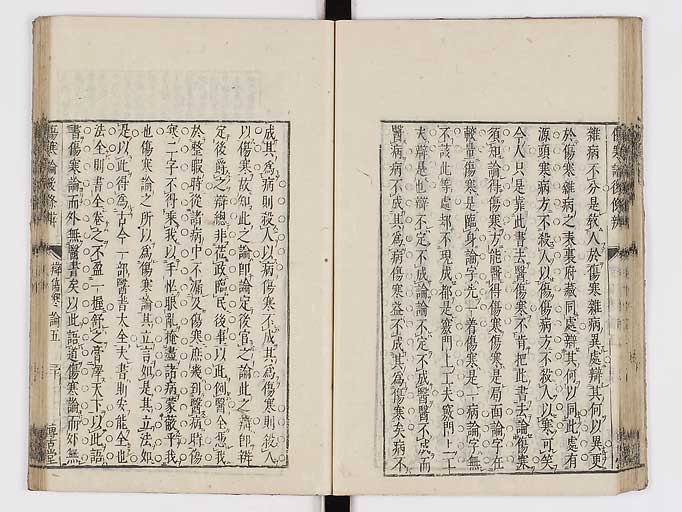 傷寒論後條辨
雜病不分是教人於傷寒雜病異處辯其何以異更
於傷寒雜病之表裏府藏同處辯其何以同此處有
源頭寒病方不殺人以傷傷病方不殺人以寒可笑
今人只是靠此書去醫傷寒不肯把此書去論傷寒
須知論得傷寒方能醫得傷寒傷寒是局面論字在
較量傷寒是臨身論字先一着傷寒是一病論字無
不該此等處却不現成都是竅門上工夫竅門上工
夫辯是也辯不定不成論論不定不成醫醫不成而
醫病病不成其爲病傷寒益不成其爲傷寒矣病不
成其爲病則殺人以病傷寒不成其爲傷寒則殺人
以傷寒故知此之論即論定後官之論此之辯即辨
定後爵之辯總非從政臨民後事以此例醫全要我
於整暇時從諸病中不漏及傷寒庶幾到醫病時傷
寒二字不得乘我以手忙眼亂掩盡諸病蒙蔽乎我
也傷寒論之所以爲傷寒論其立言如是其立法如
是以此得爲古今一部醫書太全夫書則安能全也
法全則書全卷之不盈一握舒之彌滿天下以此語
書傷寒論而外無醫書矣以此語道傷寒論而外無
傷寒論後條辨
辯傷寒論五
二十
博古堂